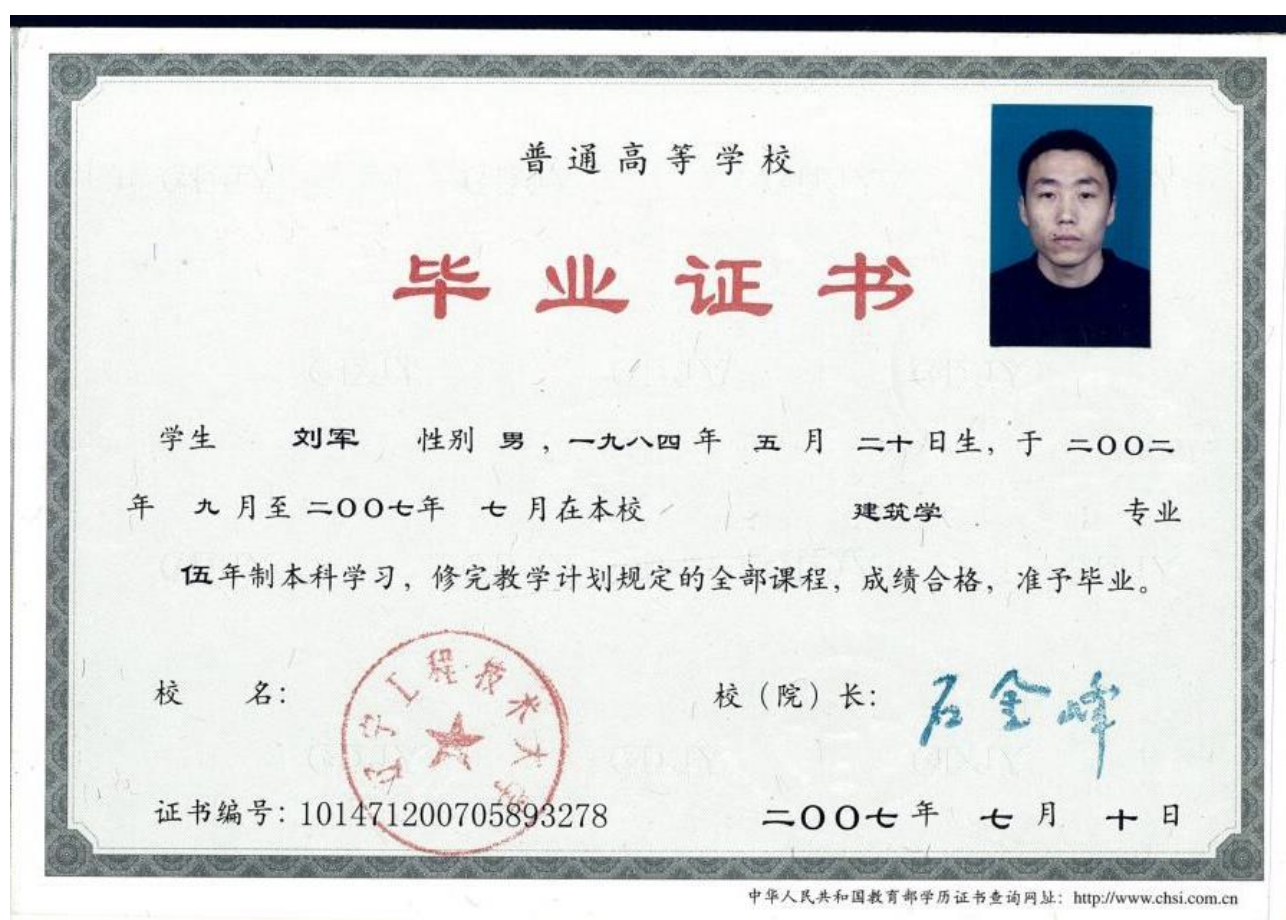 普通高等学校
毕业证书
学生 刘军 性别 男，一九八四年 五 月 二十日生，于 二〇〇二
年 九 月至二〇〇七年 七 月在本校 建筑学 专业
伍年制本科学习，修完教学计划规定的全部课程，成绩合格，准予毕业。
校 名：
辽宁工程技术大学
校（院）长：石金峰
证书编号：101471200705893278
二〇〇七年 七 月 十 日
中华人民共和国教育部学历证书查询网址：http://www.chsi.com.cn